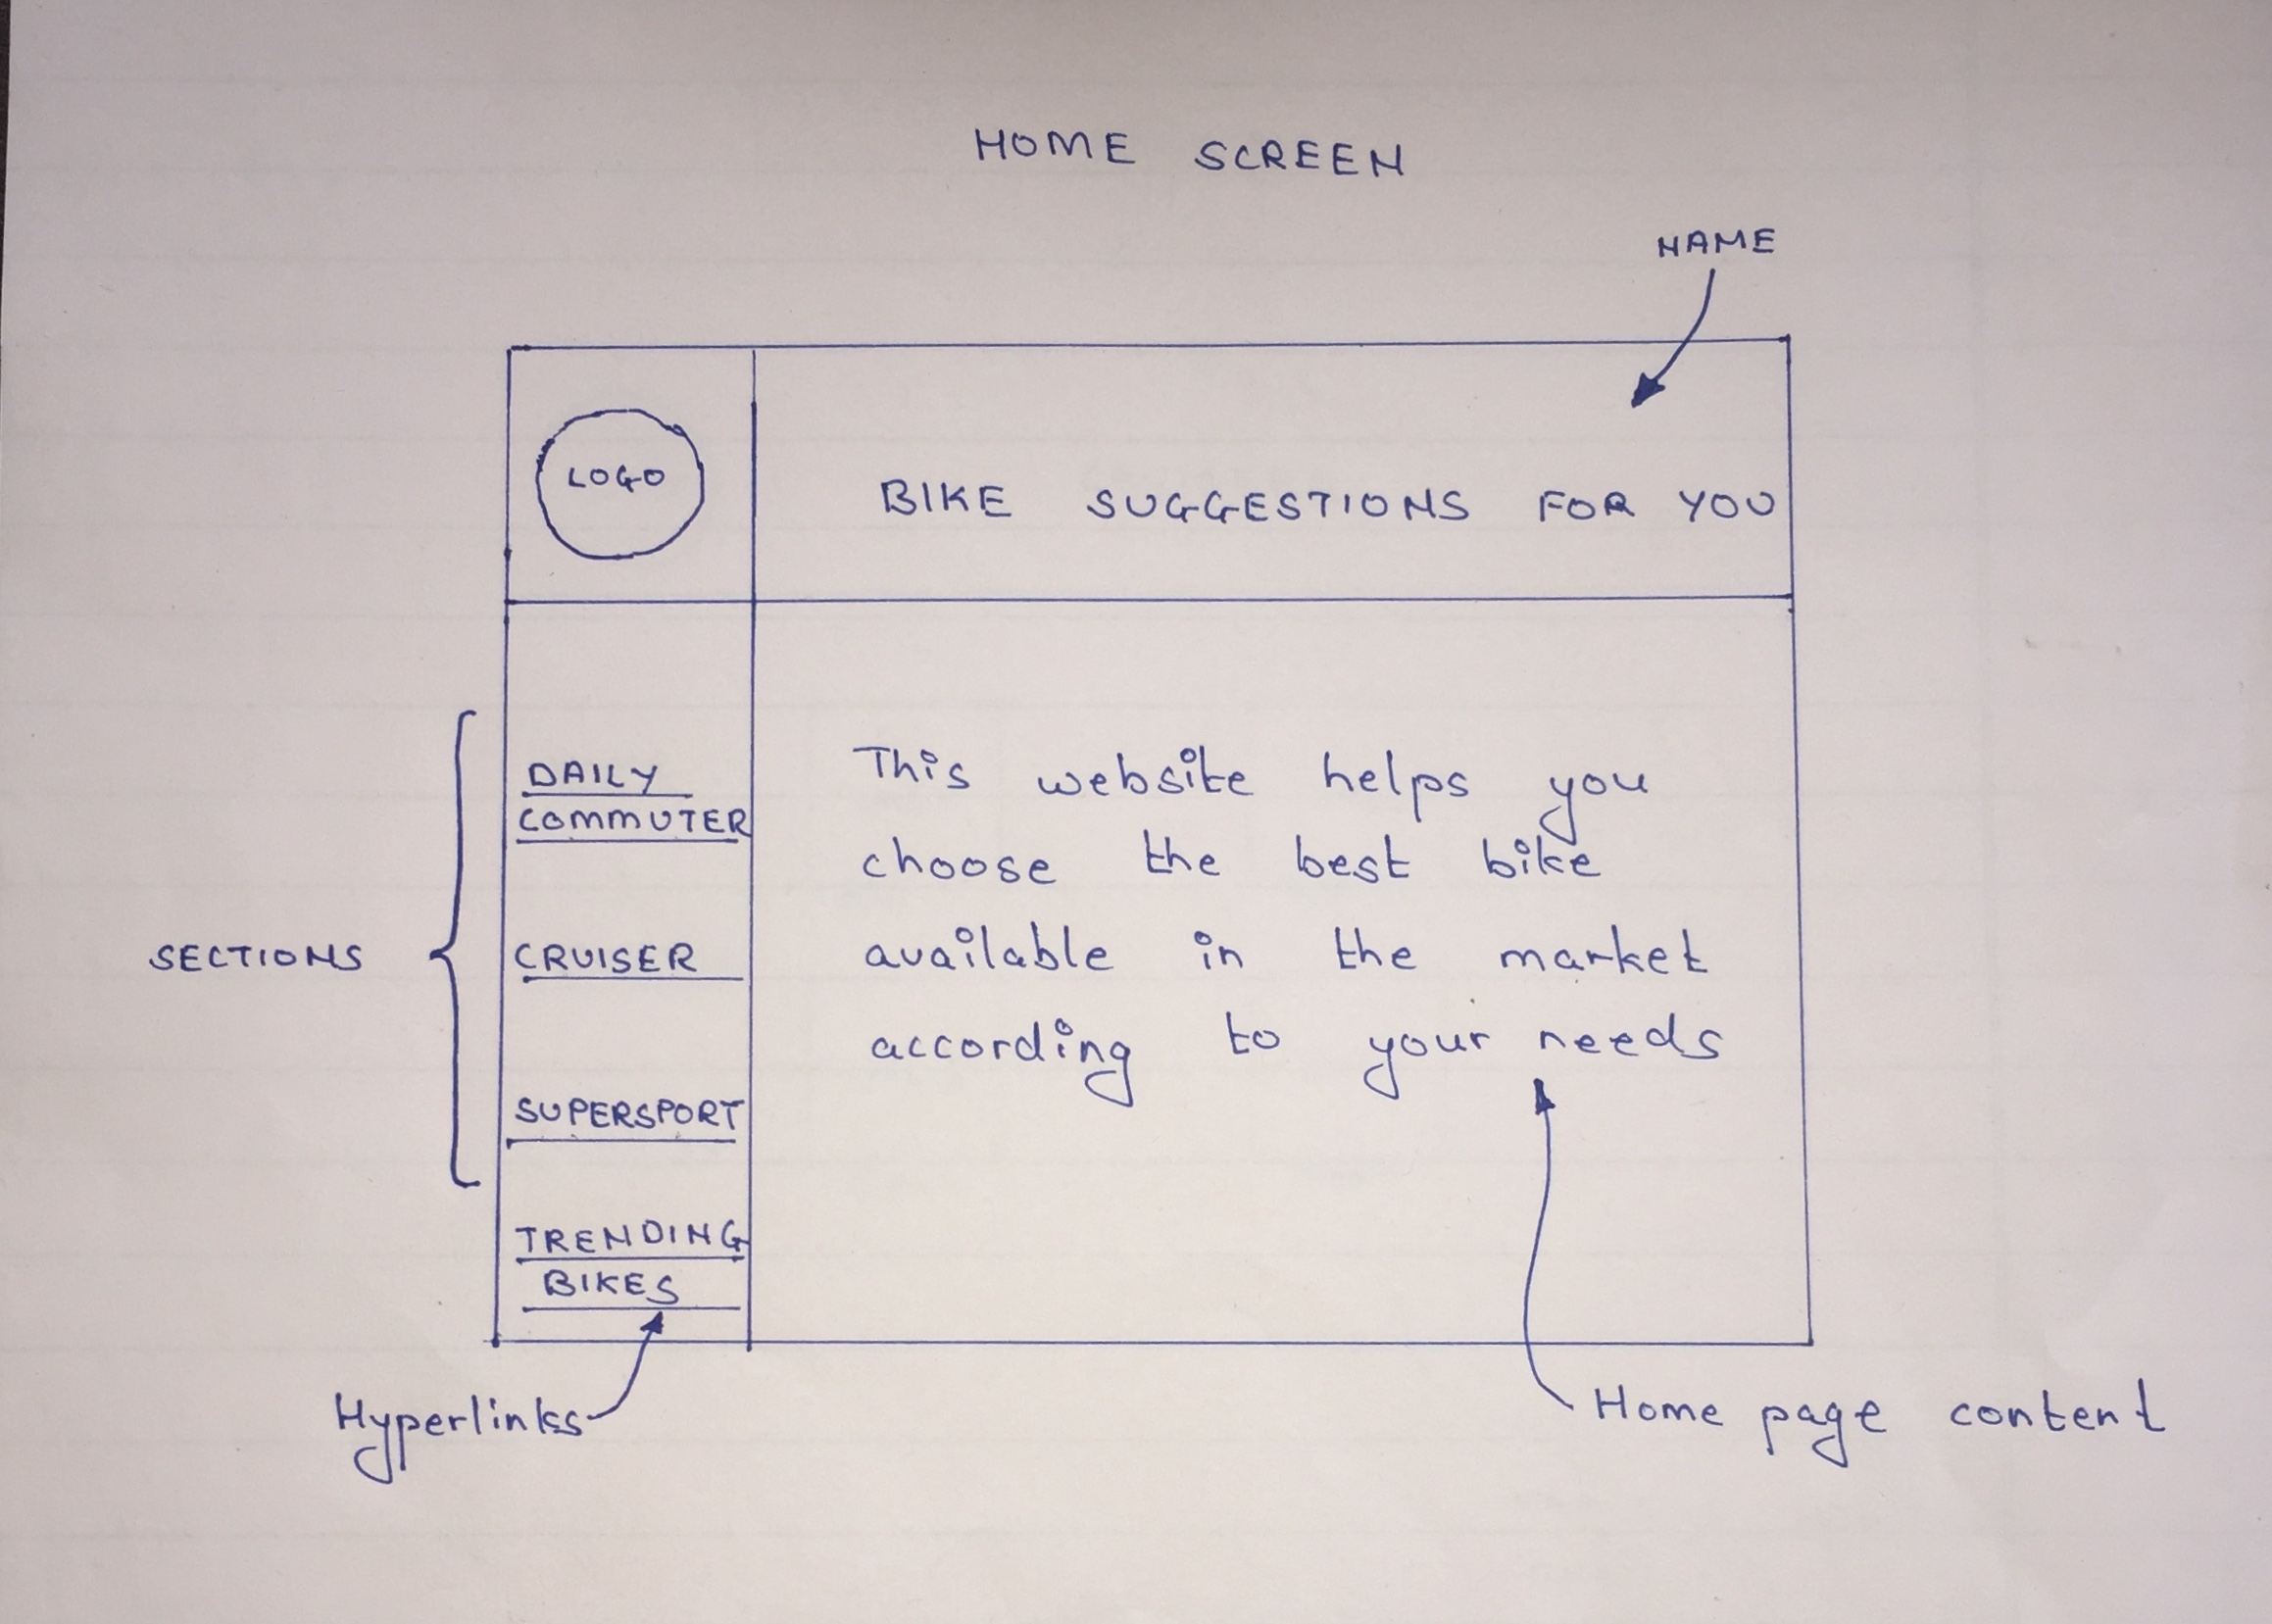 HOME SCREEN
NAME
LOGO
BIKE SUGGESTIONS FOR YOU
DAILY
COMMUTER
CRUISER
SUPERSPORT
TRENDING
BIKES
SECTIONS
This website helps you
choose the best bike
available in the market
according to your needs
Hyperlinks
Home page content